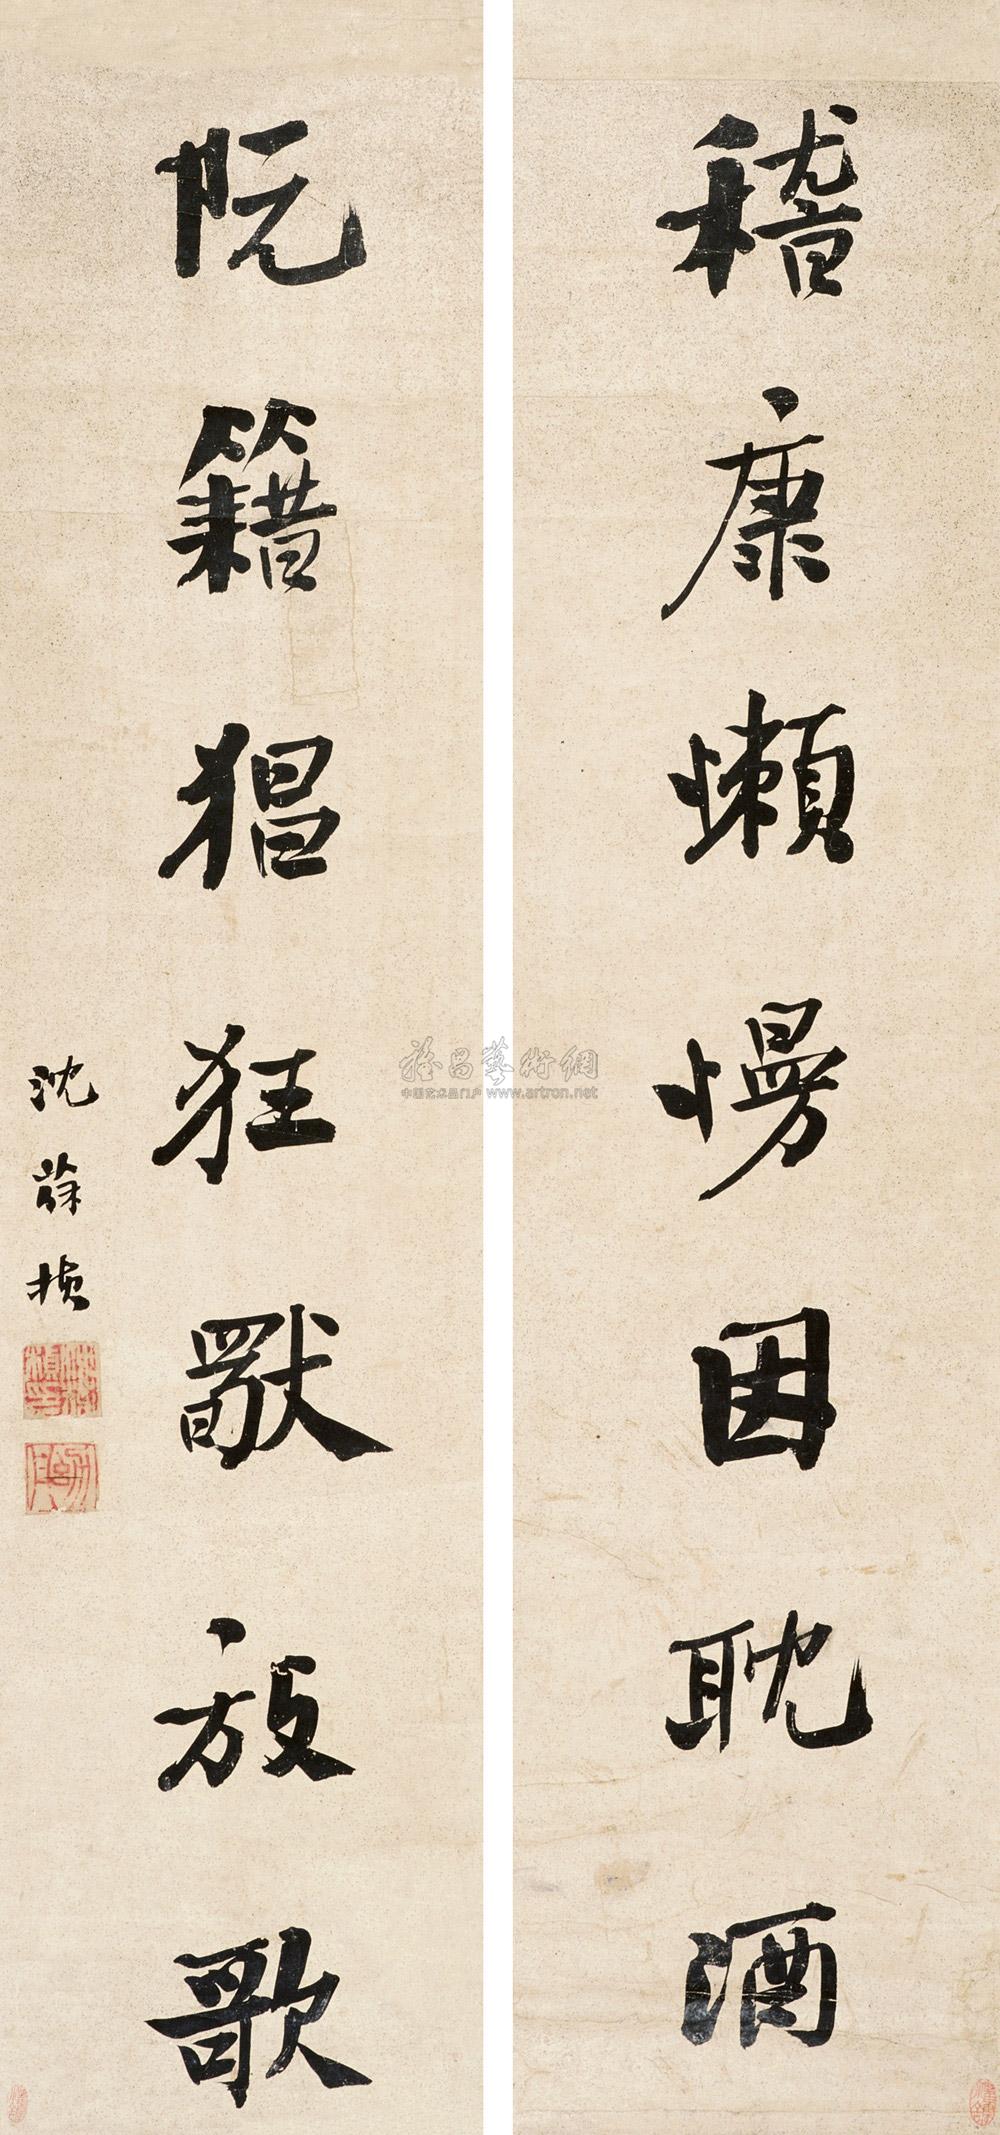 稽康懶慢因耽酒
阮籍猖狂放歌
沈葆楨
雅昌藝術網
中国艺术品门户 www.artron.net